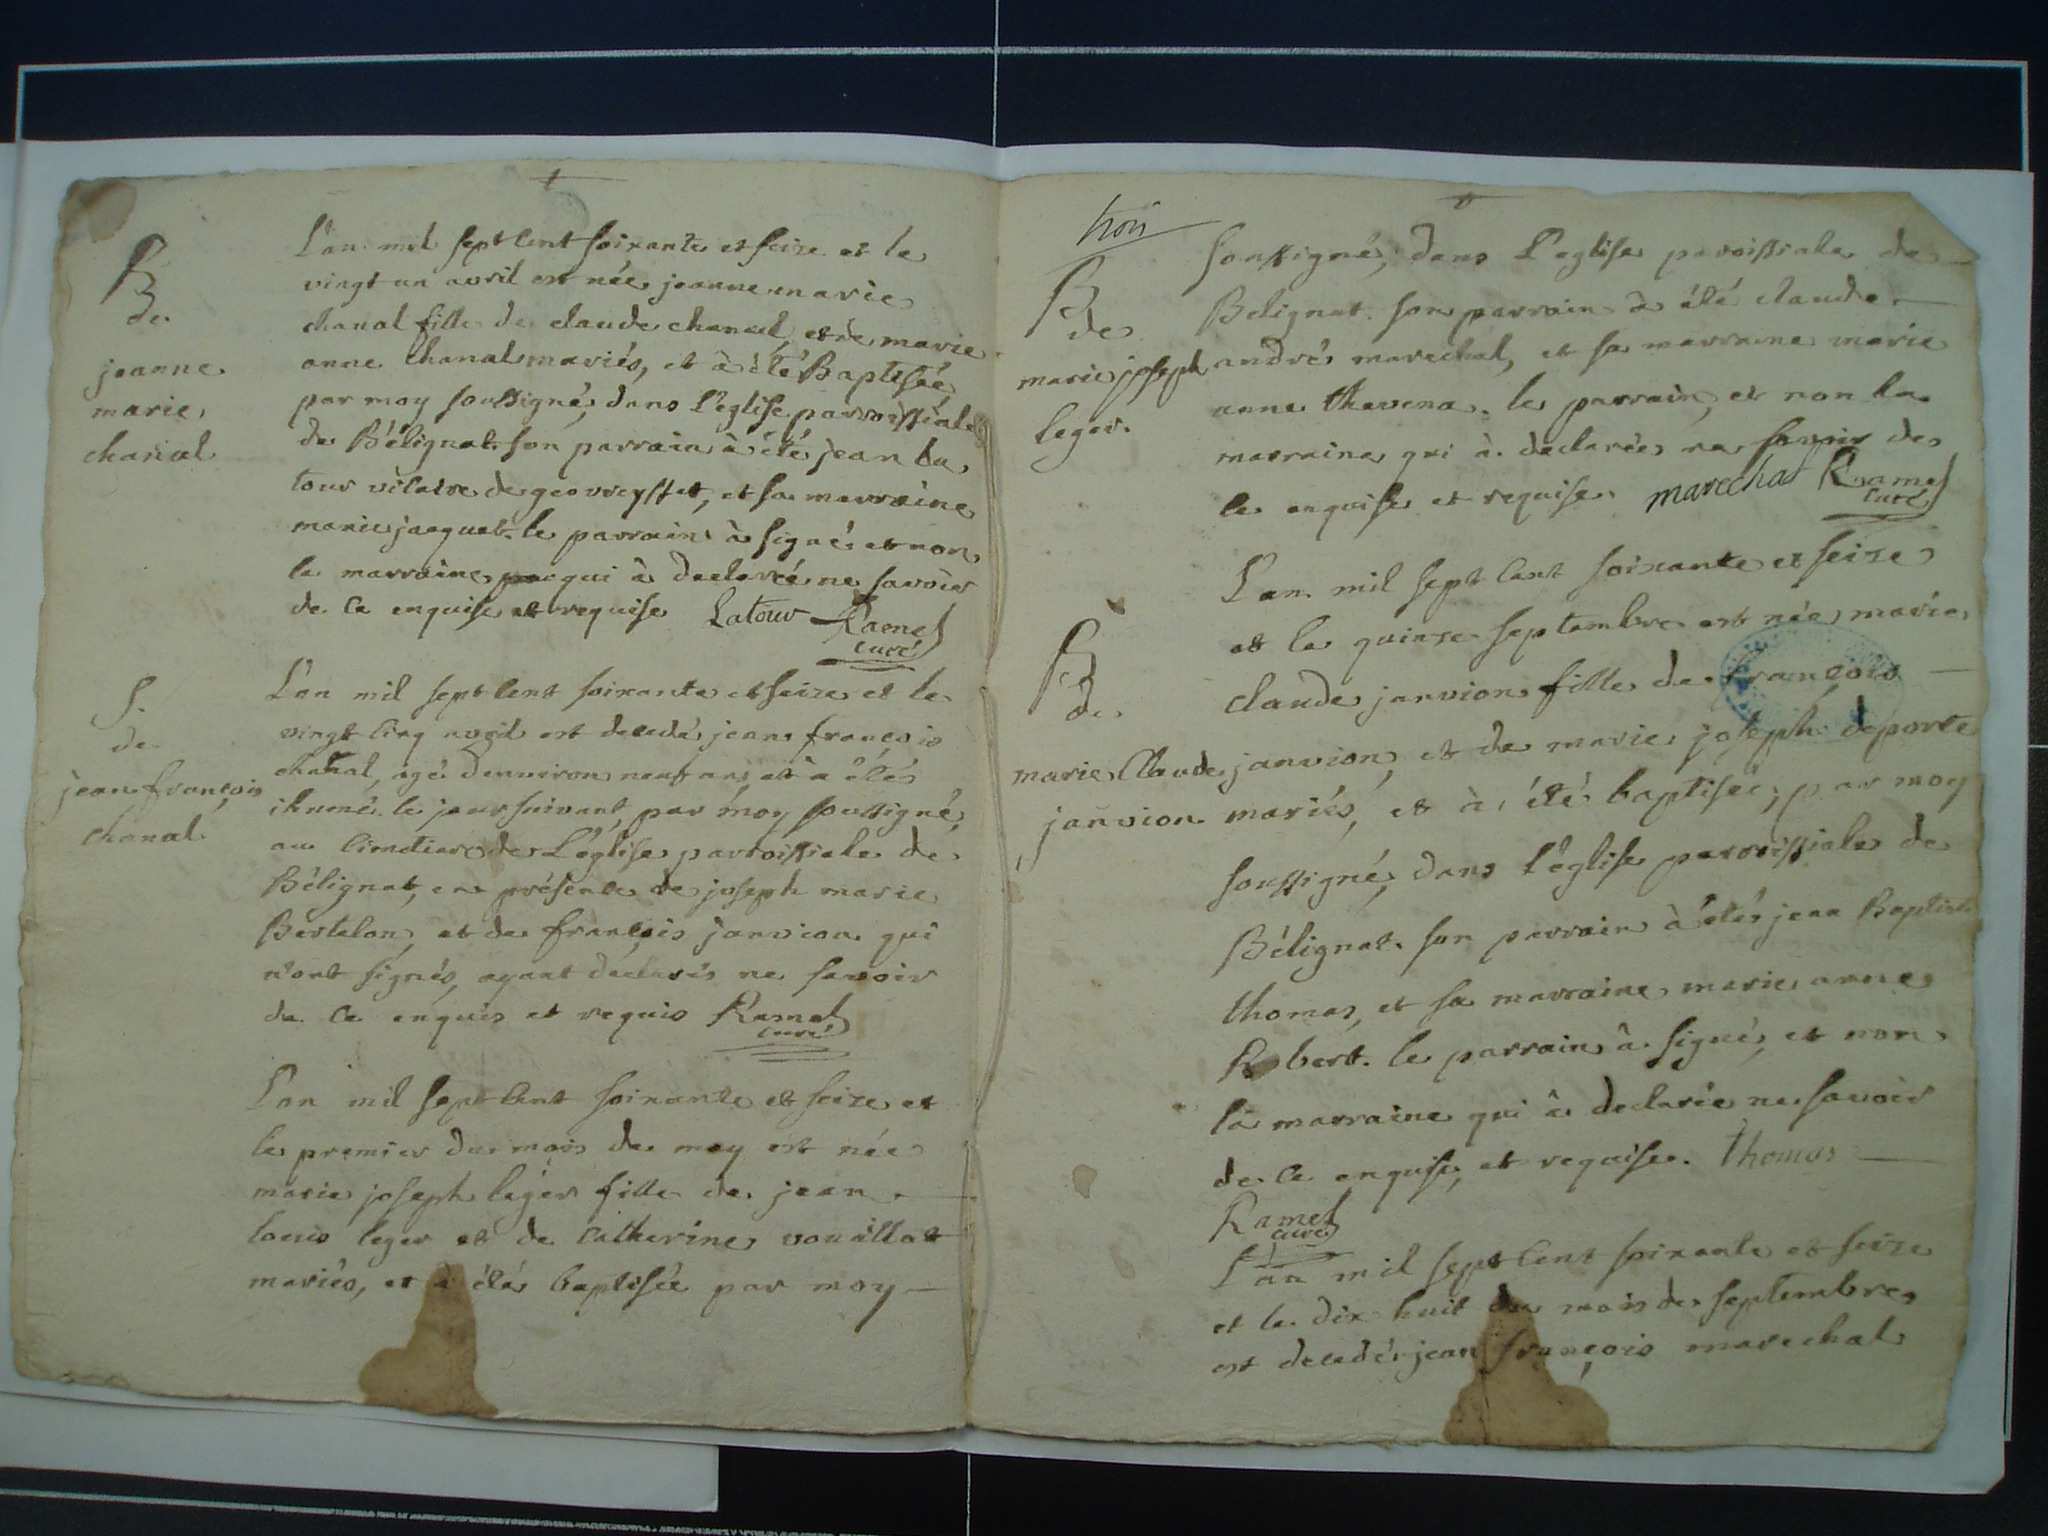 B
de
jeanne
marie
chanal
L'an mil sept cent soixante et seize et le
vingt un avril est née jeanne marie
chanal fille de claude chanal, et de marie
anne chanal mariés, et à été Baptisée
par moy soussigné, dans l'eglise parroissiale
de Bélignat. son parrain à été jean la
tour vicaire de geovreysset, et sa marraine
marie jacquet. le parrain à signé et non
la marraine qui à declaré ne savoir
de ce enquise et requise Latour Ramel
curé
S.
de
jean françois
chanal
L'an mil sept cent soixante et seize et le
vingt cinq avril est decedé jean françois
chanal, agé d'environ neuf ans et à été
ihumé le jour suivant, par moy soussigné,
au cimetiere de L'église parroissiale de
Bélignat, en présence de joseph marie
Bertelon, et de françois janvion qui
n'ont signés, ayant déclarés ne savoir
de ce enquis et requis Ramel
curé
L'an mil sept cent soixante et seize et
le premier du mois de may est née
marie joseph léger fille de jean
louis leger et de catherine vouillat
mariés, et à été baptisée par moy
trois
B
de
marie joseph
leger.
soussigné, dans l'eglise paroissiale de
Belignat. son parrain à été claude
andré marechal, et sa marraine marie
anne thevena. le parrain, et non la
marraine qui à declarée ne savoir de
ce enquise et requise. marechal Ramel
curé
B
de
marie Claude
janvion
L'an mil sept cent soixante et seize
et le quinze septembre est née marie
claude janvion fille de françois
janvion, et de marie joseph deporte
mariés, et à été baptisée, par moy
soussigné, dans l'église parroissiale de
Bélignat. son parrain à été jean Baptiste
thomas, et sa marraine marie anne
Robert. le parrain à signé, et non
la marraine qui à declarée ne savoir
de ce enquise, et requise. thomas
Ramel
curé
L'an mil sept cent soixante et seize
et le dix huit du mois de septembre
est decedé jean françois marechal